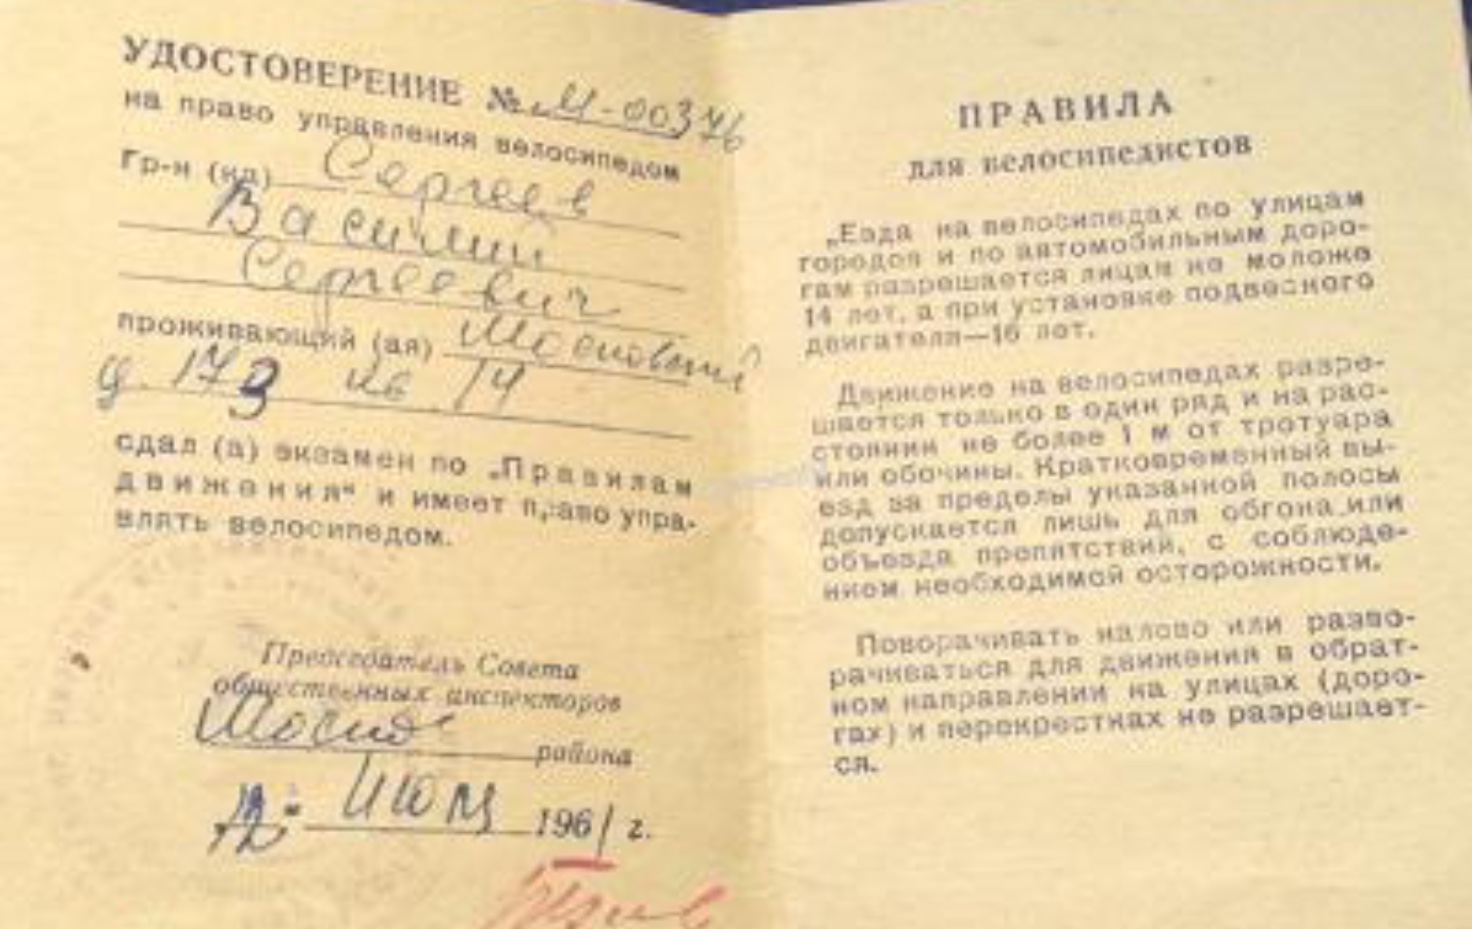 УДОСТОВЕРЕНИЕ № М-00376
на право управления велосипедом
Гр-н (ка) Сергеев
Василий
Сергеевич
проживающий (ая) Московский
д. 173 кв 14
сдал (а) экзамен по „Правилам
движения“ и имеет право упра-
влять велосипедом.
Председатель Совета
общественных инспекторов
района
июля 1961 г.
ПРАВИЛА
для велосипедистов
„Езда на велосипедах по улицам
городов и по автомобильным доро-
гам разрешается лицам не моложе
14 лет, а при установке подвесного
двигателя—16 лет.
Движение на велосипедах разре-
шается только в один ряд и на рас-
стоянии не более 1 м от тротуара
или обочины. Кратковременный вы-
езд за пределы указанной полосы
допускается лишь для обгона или
объезда препятствий, с соблюде-
нием необходимой осторожности.
Поворачивать налево или разво-
рачиваться для движения в обрат-
ном направлении на улицах (доро-
гах) и перекрестках не разрешает-
ся.